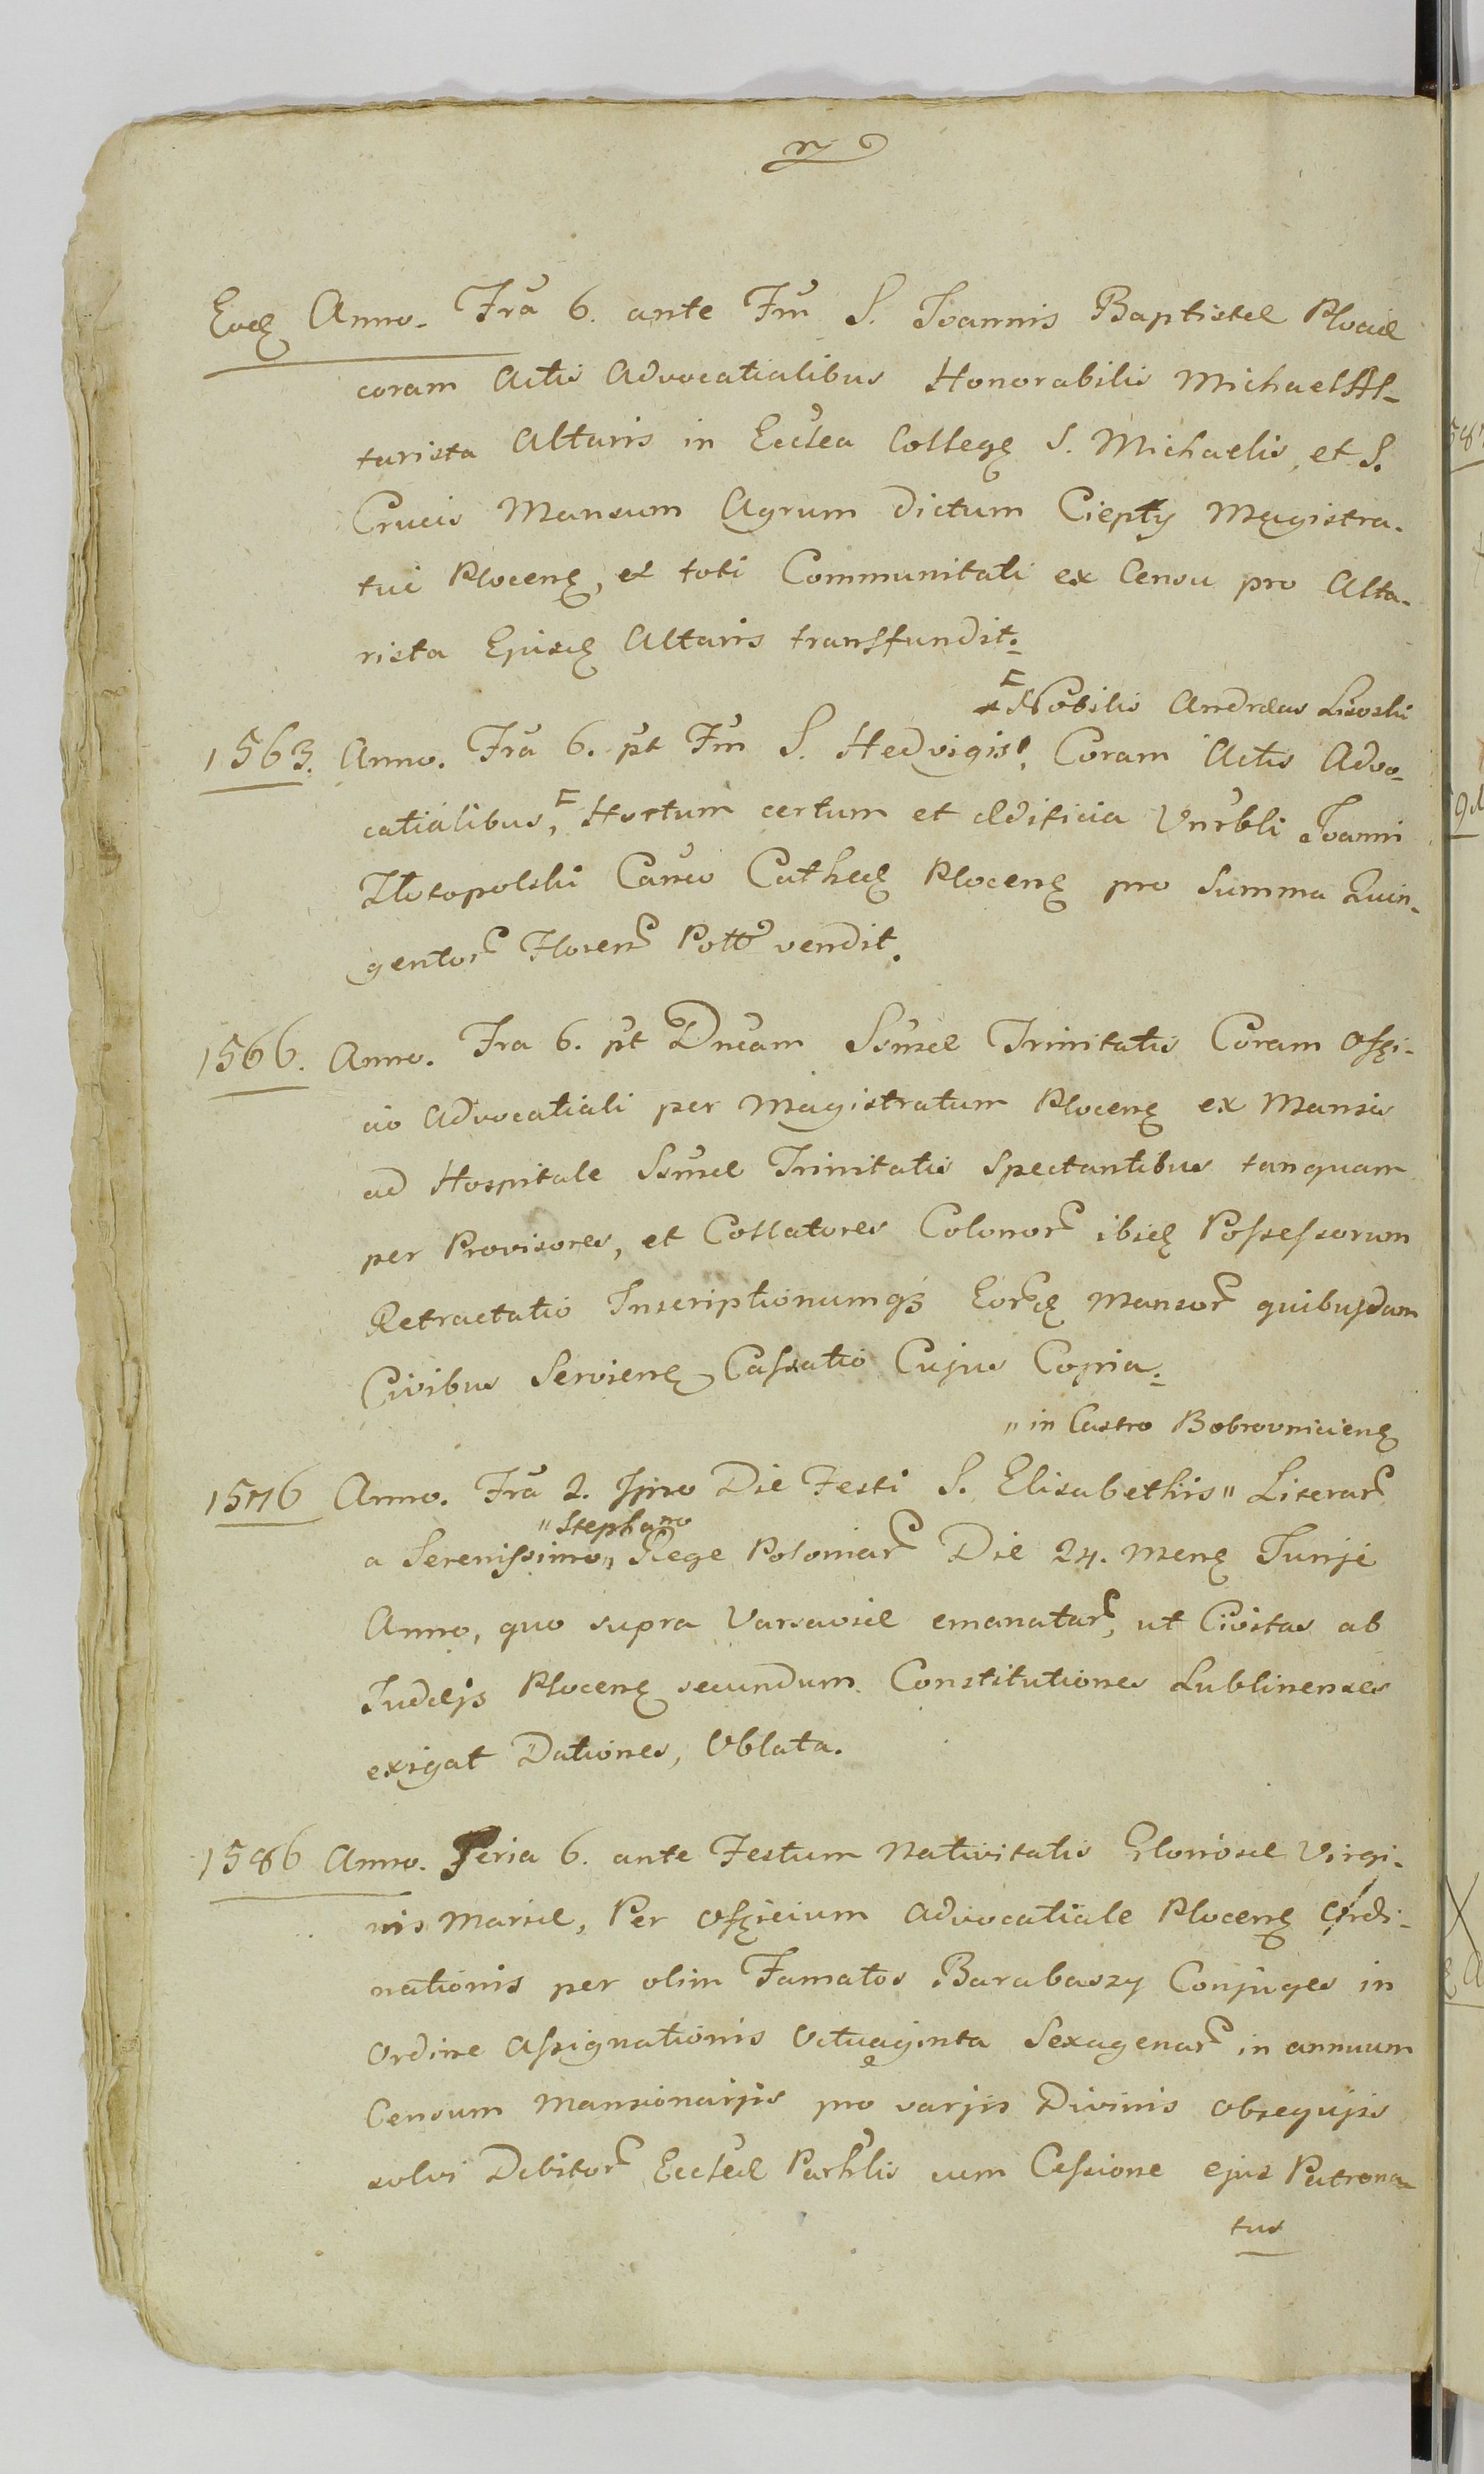 Eodę Anno. Fra 6. ante Fm S. Joannis Baptistæ Plociæ
coram Actis Advocatialibus Honorabilis Michael Al-
tarista Altaris in Ecclea Collegę S. Michaelis, et S.
Crucis Mansum Agrum dictum Ciepły Magistra-
tui Plocenę, et toti Communitati ex Censu pro Alta-
rista Ejusdę Altaris transfundit.
Nobilis Andreas Lisoski
1563. Anno. Fra 6. pt Fm S. Hedvigis, Coram Actis Advo-
catialibus, Hortum certum et ædificia Vnrbli Joanni
Złotopolski Canco Cathedę Plocenę pro Summa Quin-
gentor Floren Poll vendit.
1566. Anno. Fra 6. pt Dncam Ssmæ Trinitatis Coram Offi-
cio Advocatiali per Magistratum Plocenę ex Mansis
ad Hospitale Ssmæ Trinitatis Spectantibus tanquam
per Provisores, et Collatores Colonor ibidę Possessorum
Retractatio Inscriptionumq3 Eordę Mansor quibusdam
Civibus Servienę Cassatio Cujus Copia.
" in Castro Bobrovnicienę
1576 Anno. Fra 2. Ipso Die Festi S. Elisabethis " Literar
" Stephano
a Serenissimo " Rege Poloniar Die 24. Menę Junij
Anno, quo supra Varsaviæ emanatar, ut Civitas ab
Judæis Plocenę secundum Constitutiones Lublinenses
exigat Dationes, Oblata.
1586 Anno. Feria 6. ante Festum Nativitatis Gloriosæ Virgi-
nis Mariæ, Per Officium Advocatiale Plocenę Ordi-
nationis per olim Famatos Barabaszy Conjuges in
Ordine Assignationis Octuaginta Sexagenar in annuum
Censum Mansionarijs pro varijs Divinis Obsequijs
solvi Debitor Ecclæ Parhlis cum Cessione ejus Patrona-
tus